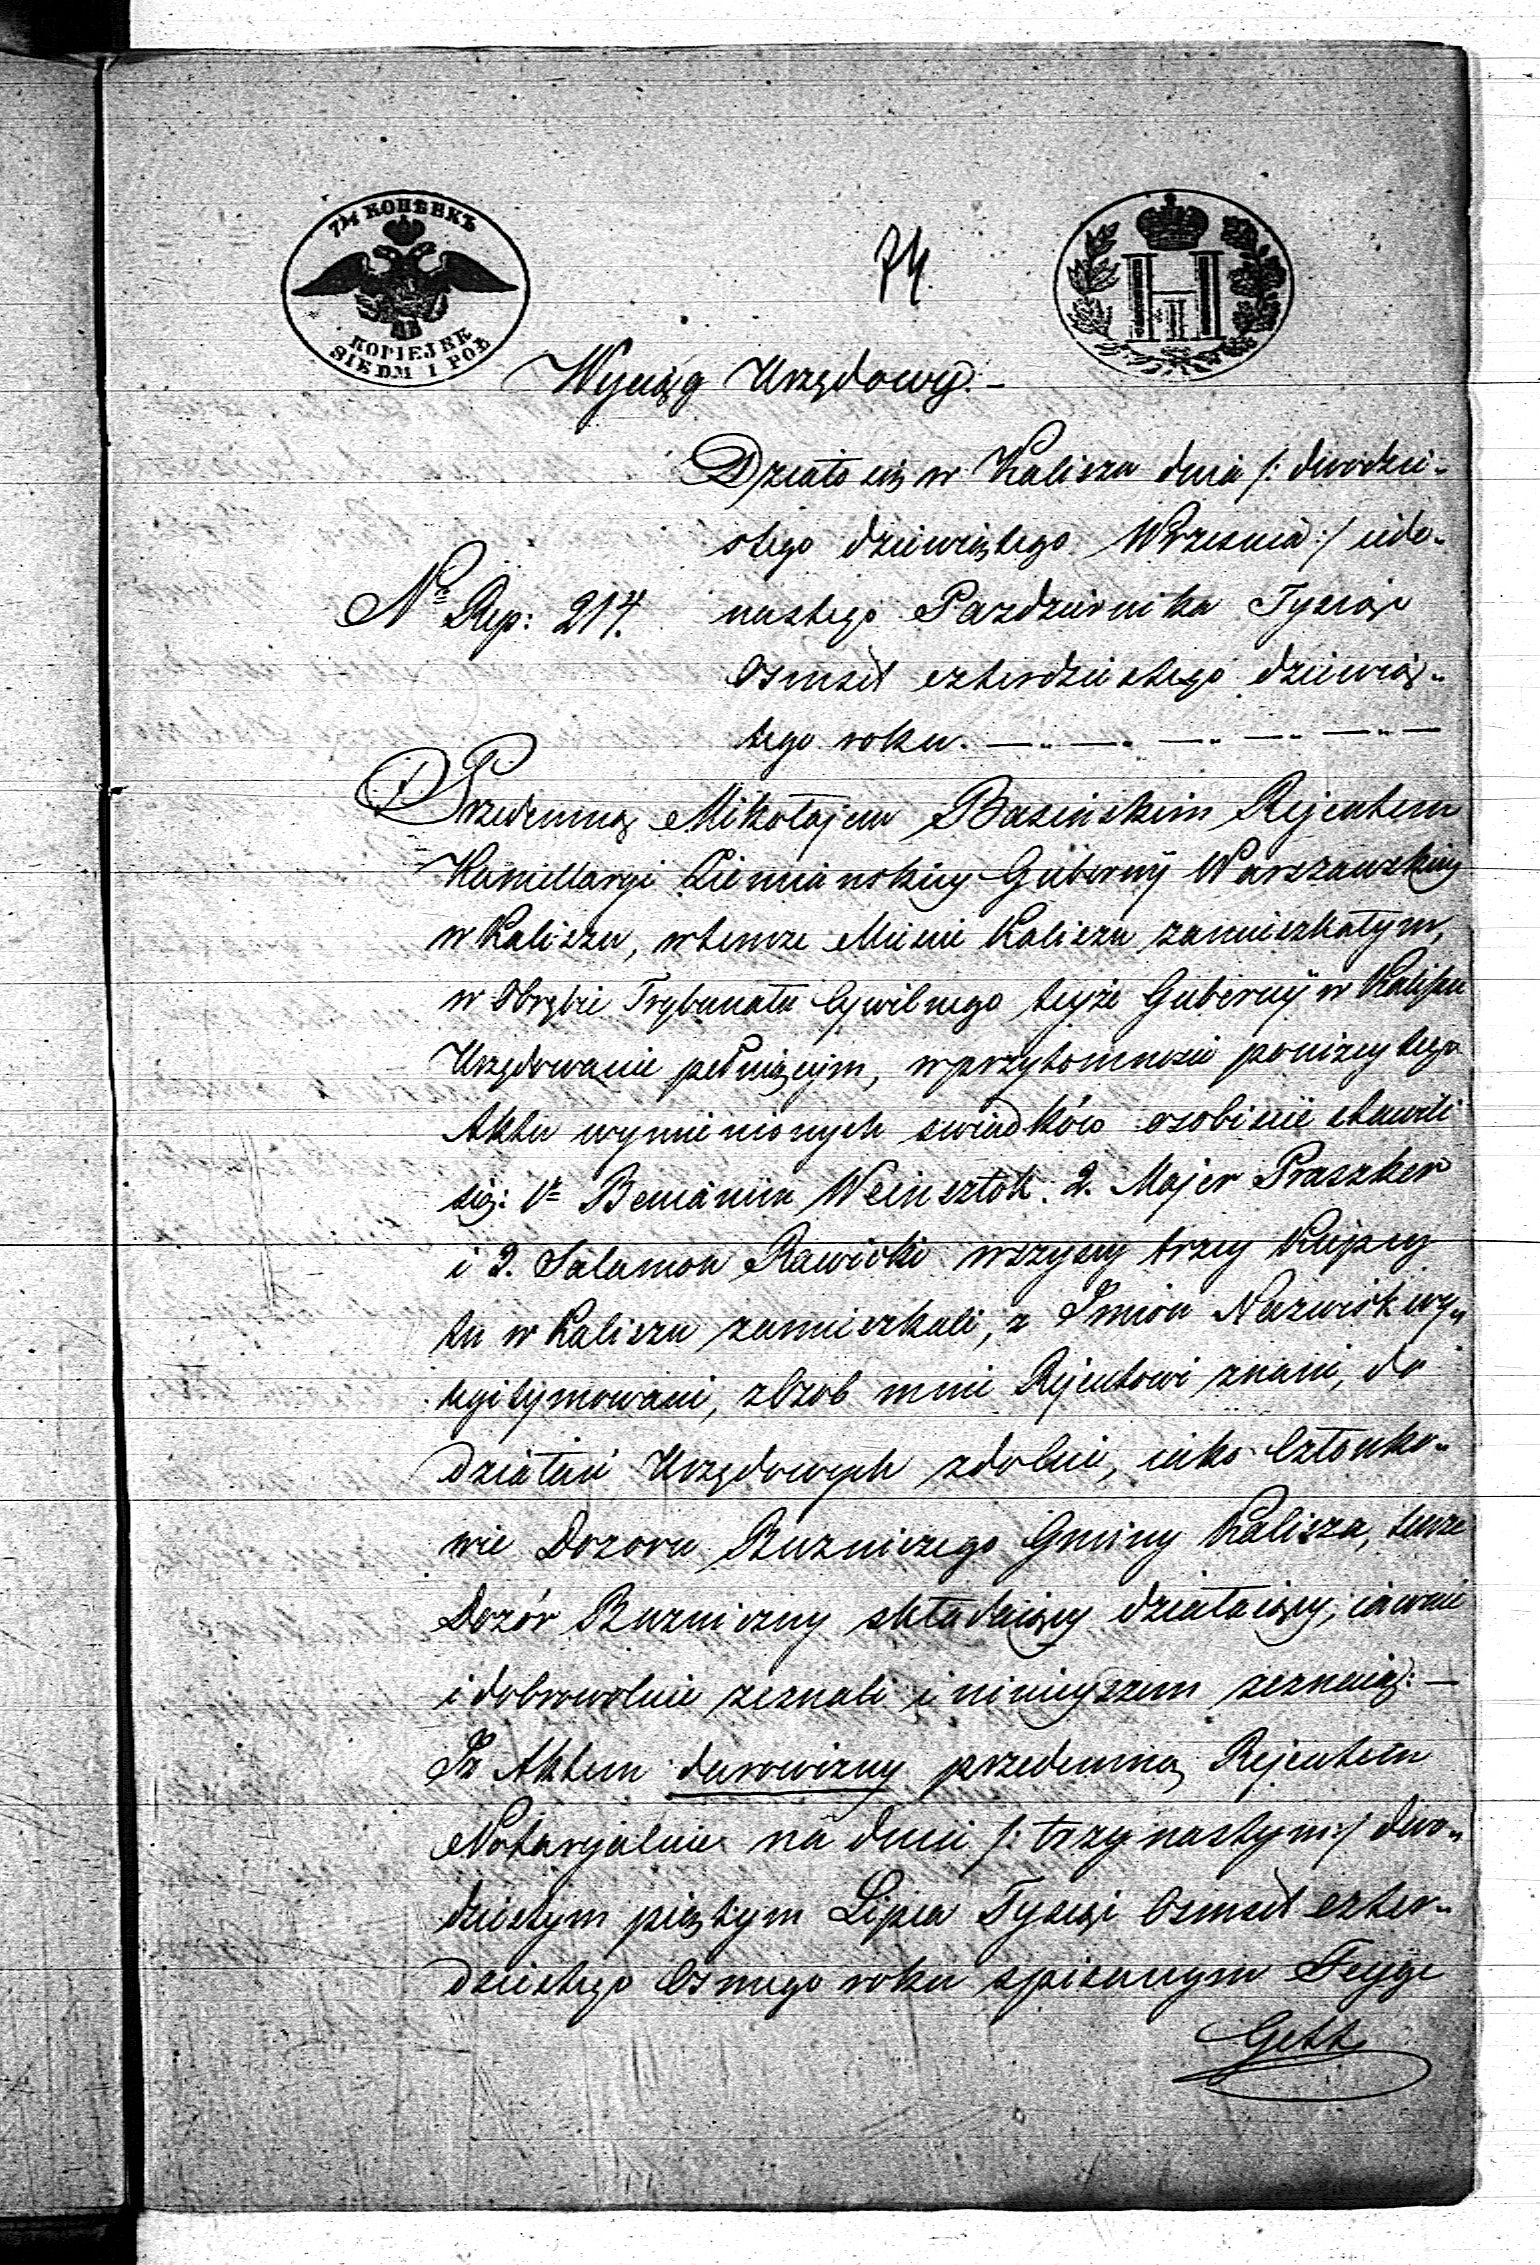 7½ КОПѢЕКЪ
KOPIEJEK
SIEDM I POŁ
74.
Wyciąg Urzędowy. —
Działo się w Kaliszu dnia /: dwudzie-
stego dziewiątego Września :/ iede-
nastego Pazdziernika Tysiąc
N° Rep: 214.
Osmset czterdziestego dziewią-
tego roku. —
Przedemną Mikołajem Basińskim Rejentem
Kancellaryi Ziemiańskiey Gubernÿ Warszawskiey
w Kaliszu, w temze Miescie Kaliszu zamieszkałym,
w Obrębie Trybunału Cywilnego teyże Gubernÿ w Kaliszu
Urzędowanie pełniącym, w przytomności poniżey tego
Aktu wymienionych swiadków osobiscie stawili
się: 1° Beniamin Weinsztok. 2. Majer Praszker
i 3. Salamon Rawicki wszyscy trzey Kupcy
tu w Kaliszu zamieszkali, z Imion Nazwisk wy-
legitymowani, z Osob mnie Rejentowi znani, do
działań Urzędowych zdolni, iako Członko-
wie Dozoru Bużniczego Gminy Kalisza, tenze
Dozór Bużniczny składaiący działaiący, iawnie
i dobrowolnie zeznali i ninieyszem zeznaią: —
Iz Aktem darowizny przedemną Rejentem
Notaryalnie na dniu /: trzynastym :/ dwu-
dziestym piątym Lipca Tysiąc Osmset czter-
dziestego Osmego roku spisanym Feyge
Gett